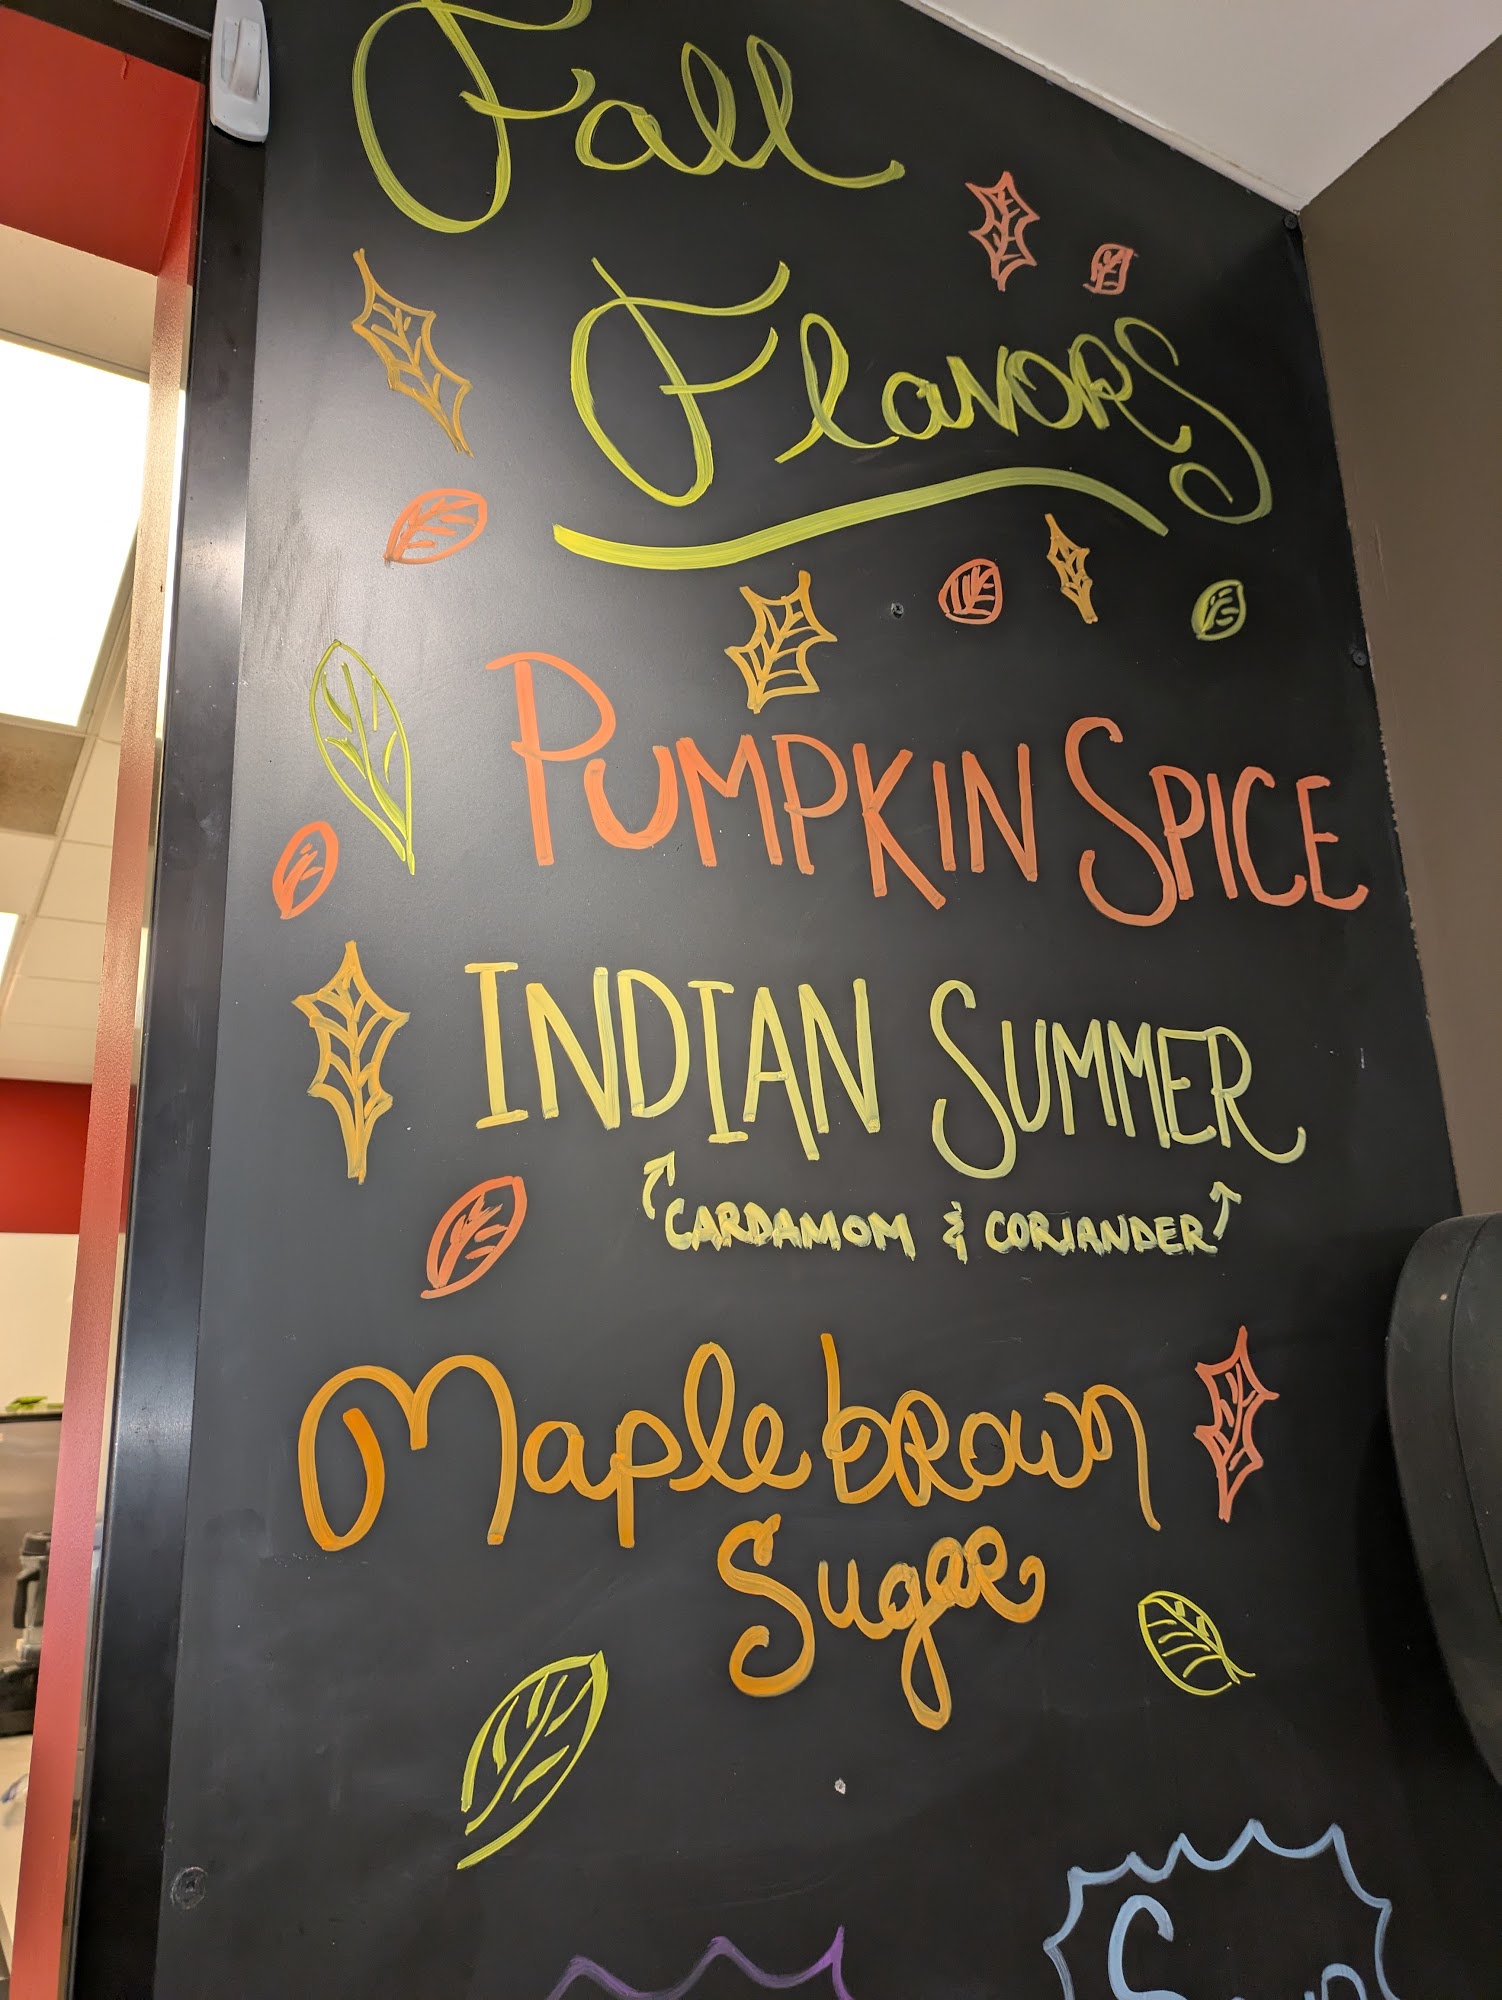 Fall
Flavors
PUMPKIN SPICE
INDIAN SUMMER
CARDAMOM & CORIANDER
Maple brown
Sugar